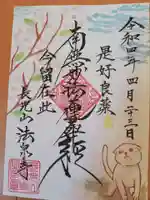 令和四年 四月二十三日
是好良薬
南無妙法蓮華経
今留在此
長光山 法泉寺